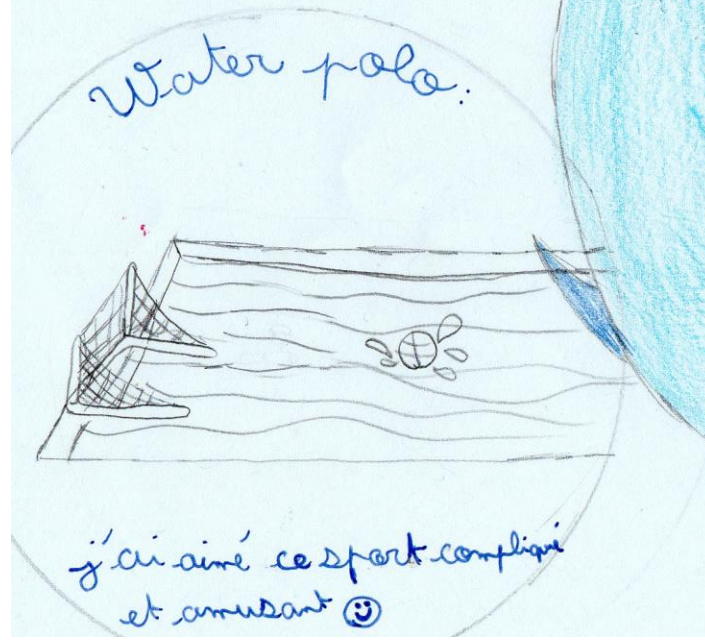 Water polo:
j'ai aimé ce sport compliqué
et amusant